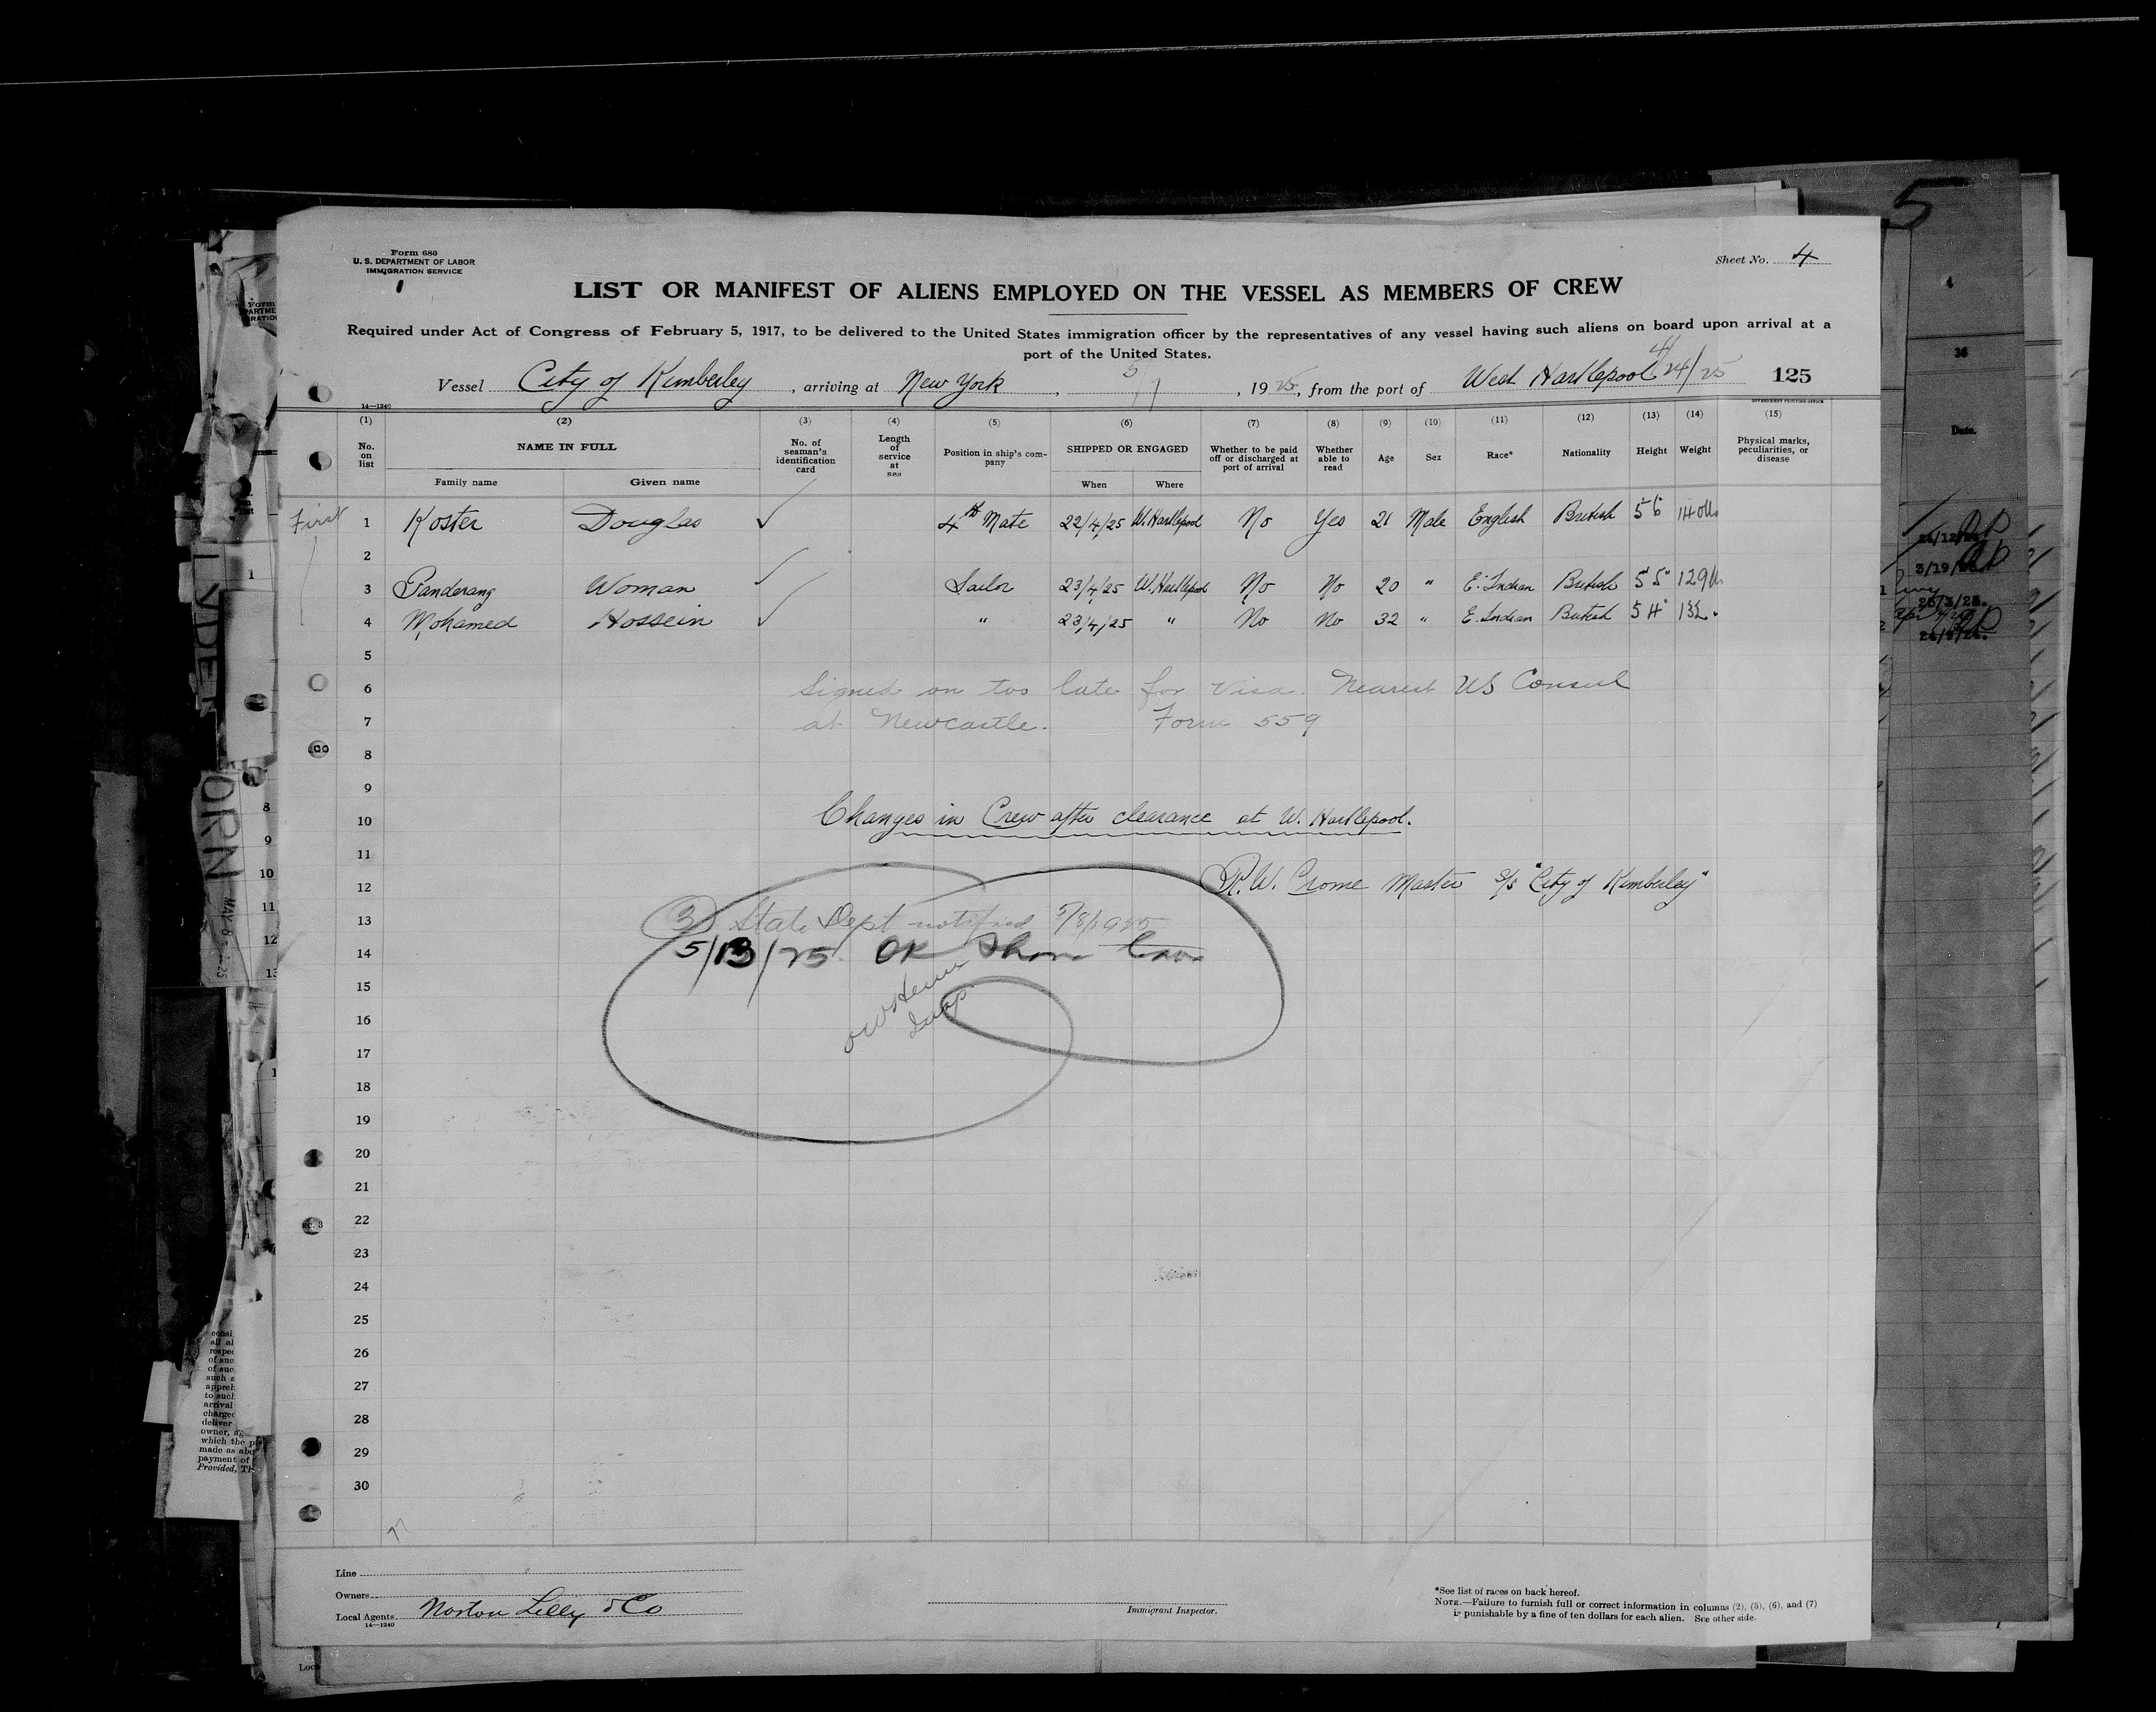 5
Form 680
U. S. DEPARTMENT OF LABOR
IMMIGRATION SERVICE
Sheet No. 4
LIST OR MANIFEST OF ALIENS EMPLOYED ON THE VESSEL AS MEMBERS OF CREW
Required under Act of Congress of February 5, 1917, to be delivered to the United States immigration officer by the representatives of any vessel having such aliens on board upon arrival at a
port of the United States.
Vessel City of Kimberley, arriving at New York, 5/7, 1925, from the port of West Hartlepool 4/24/25 125
14—1240
GOVERNMENT PRINTING OFFICE
(1) (2) (3) (4) (5) (6) (7) (8) (9) (10) (11) (12) (13) (14) (15)
No. on list NAME IN FULL No. of seaman's identification card Length of service at sea Position in ship's company SHIPPED OR ENGAGED Whether to be paid off or discharged at port of arrival Whether able to read Age Sex Race* Nationality Height Weight Physical marks, peculiarities, or disease
Family name Given name When Where
First 1 Koster Douglas ✓ 4th Mate 22/4/25 W. Hartlepool No Yes 21 Male English British 5 6 140 lbs
2
3 Panderang Woman ✓ Sailor 23/4/25 W. Hartlepool No No 20 " E. Indian British 5 5" 129 lb
4 Mohamed Hossein ✓ " 23/4/25 " No No 32 " E. Indian British 5 4"
5
6 Signed on too late for Visa. Nearest US Consul
7 at Newcastle. Form 559
8
9
10 Changes in Crew after clearance at W. Hartlepool.
11
12 R. W. Crome Master S/S "City of Kimberley"
13 (3) State Dept notified 5/8/1925
14 5/13/25 OK Shore
15
16
17
18
19
20
21
22
23
24
25
26
27
28
29
30
Line
Owners
Local Agents Norton Lilly & Co
14—1240
Immigrant Inspector.
*See list of races on back hereof.
NOTE.—Failure to furnish full or correct information in columns (2), (5), (6), and (7)
is punishable by a fine of ten dollars for each alien. See other side.
4
36
Date.